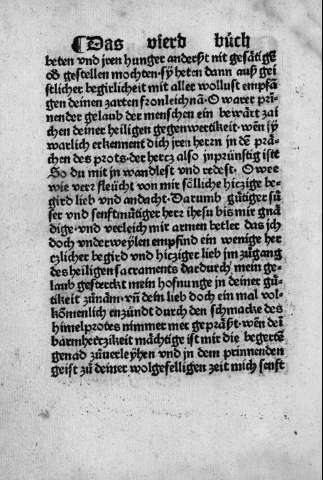 Das vierd bůch
beten vnd jren hunger anderſt nit geſåtigẽ
oď geſtellen mochten · ſÿ heten dann auß gei
ſtlicher begirlicheit mit aller wolluſt empfã
gen deinen zarten fronleichnã · O warer pri
nender gelaub der menſchen ein bewårt zai
chen deiner heiligen gegenwertikeit · weñ jÿ
warlich erkennent dich jren herrn in dẽ prå
chen des prots · der hertz alſo inprünſtig iſt
So du mit in wandleſt vnd redeſt · O wee
wie verr fleücht von mir ſölliche hiczige be-
gird lieb vnd andacht · Darumb gůtiger ſů
ſer vnd ſenftmůtiger herr iheſu bis mir gnå
dige · vnd verleich mit armen betler das ich
doch vnderweylen empfind ein wenige her
czlicher begird vnd hicziger lieb jm zůgang
des heiligen ſacraments dardurch mein ge-
laub geſterckt mein hofnunge in deiner gů-
tikeit zůnãm · vñ dein lieb doch ein mal vol-
kõmenlich enzündt durch den ſchmacke des
himelprotes nimmer mer gepråſt · weñ dei
barmhertzikeit måchtige iſt mir die begerte
genad zůuerleÿhen vnd in dem prinnenden
geiſt zů deiner wolgefelligen zeit mich ſenft